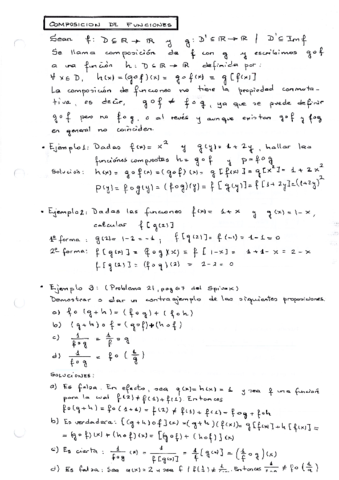 COMPOSICION DE FUNCIONES
Sean f: D⊆R→R y g: D'⊆R→R / D'⊆Imf
Se llama composición de f con g y escribimos gof
a una función h: D⊆R→R definida por:
∀x∈D, h(x)=(gof)(x)= gof(x)= g[f(x)]
La composición de funciones no tiene la propiedad conmuta-
tiva, es decir, gof ≠ fog, ya que se puede definir
gof pero no fog, o al revés y aunque existan gof y fog
en general no coinciden.
• Ejemplo1: Dadas f(x)=x² y g(y)=1+2y, hallar las
funciones compuestas h=gof y p=fog
Solución: h(x)= gof(x)=(gof)(x)= g[f(x)]=g[x²]=1+2x²
p(y)= fog(y)=(fog)(y)= f[g(y)]=f[1+2y]=(1+2y)²
• Ejemplo2: Dadas las funciones f(x)=1+x y g(x)=1-x,
calcular f[g(2)]
1ª forma: g(2)=1-2=-1; f[g(2)]=f(-1)=1-1=0
2ª forma: f[g(x)]=(fog)(x)= f[1-x]= 1+1-x=2-x
f[g(2)]=(fog)(2)= 2-2=0
• Ejemplo 3: (Problema 21, pag 93 del Spivak)
Demostrar o dar un contraejemplo de las siguientes proposiciones
a) fo(g+h)=(fog)+(foh)
b) (g+h)of=(gof)+(hof)
c) 1/fog = 1/f og
d) 1/fog = fo(1/g)
SOLUCIONES:
a) Es falsa. En efecto, sea g(x)=h(x)=1 y sea f una función
para la cual f(2)≠f(1)+f(1). Entonces
fo(g+h)=fo(1+1)=f(2)≠f(1)+f(1)=fog+foh
b) Es verdadera: [(g+h)of](x)=(g+h)(f(x))=g[f(x)]+h[f(x)]=
=(gof)(x)+(hof)(x)=[(gof)+(hof)](x)
c) Es cierta: 1/fog (x)= 1/f[g(x)] = 1/f[g(x)]=(1/f og)(x)
d) Es falsa: Sea g(x)=2 y sea f / f(1/2)≠ 1/f(2). Entonces 1/fog ≠ fo(1/g)